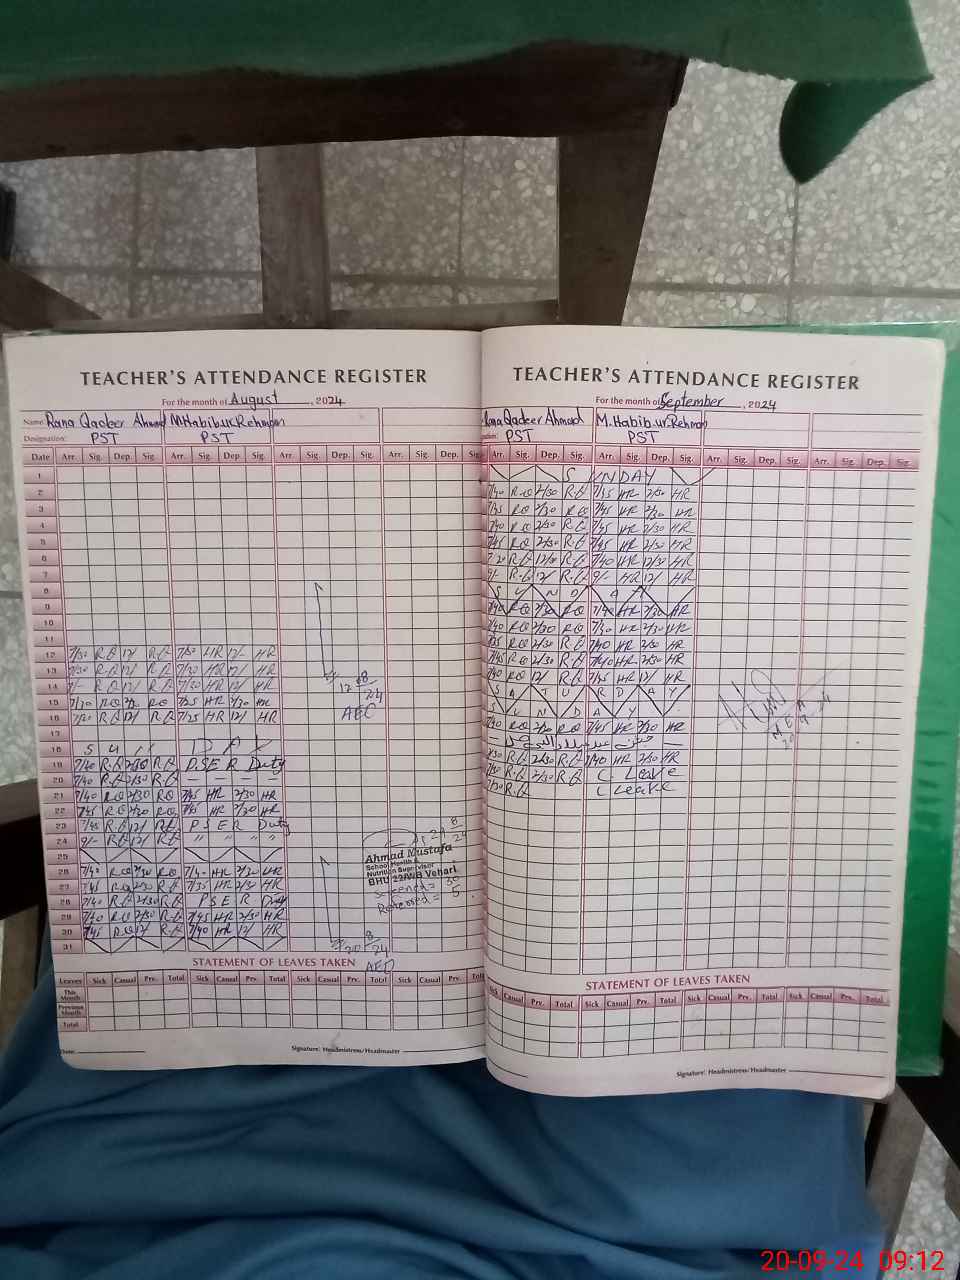 TEACHER'S ATTENDANCE REGISTER
For the month of August, 2024
Name: Rana Qadeer Ahmad M Habib.ur.Rehman
Designation: PST PST
Date Arr. Sig. Dep. Sig. Arr. Sig. Dep. Sig. Arr. Sig. Dep. Sig. Arr. Sig. Dep. Sig.
1
2
3
4
5
6
7
8
9
10
11
12 7/30 R.Q 12/ R.Q 7/30 HR 12/- HR
13 7/30 R.Q 12/ R.Q 7/30 HR 12/ HR
14 7/- R.Q 12/ R.Q 7/30 HR 12/ HR
15 7/30 RQ R.Q 7/25 HR HR
16 7/20 R.Q 12/ R.Q 7/25 HR 12/ HR
17
18 S U DAY
19 7/40 R.Q 2/30 R.Q P.S.E R Duty
20 7/40 R.Q 2/30 R.Q — — — —
21 7/40 RQ 2/30 RQ 7/45 HR 2/30 HR
22 7/45 RQ 2/30 RQ 7/45 HR 2/30 HR
23 7/45 R.Q 12/ R.Q P S E R Duty
24 9/- R.Q 12/ R.Q " " " "
25
26 7/40 RQ 2/30 RQ 7/40 HR 2/30 HR
27 7/45 RQ 2/30 R.Q 7/35 HR 2/30 HR
28 7/40 R.Q 2/30 R.Q P S E R Duty
29 7/40 RQ 2/30 R.Q 7/45 HR 2/30 HR
30 7/45 R.Q 12/ R.Q 7/40 HR 12/ HR
31
12 8/24
AEO
8/24
Ahmad Mustafa
School Health &
Nutrition Supervisor
BHU 22/WB Vehari
Screened = 30
Referred = 5
8/24
AEO
STATEMENT OF LEAVES TAKEN
Leaves Sick Casual Prv. Total Sick Casual Prv. Total Sick Casual Prv. Total Sick Casual Prv. Total
This Month
Previous Month
Total
Date:
Signature: Headmistress/Headmaster
TEACHER'S ATTENDANCE REGISTER
For the month of September, 2024
Rana Qadeer Ahmad M. Habib.ur.Rehman
PST PST
Arr. Sig. Dep. Sig. Arr. Sig. Dep. Sig. Arr. Sig. Dep. Sig. Arr. Sig. Dep. Sig.
S UNDAY
7/40 R.Q 2/30 R.Q 7/35 HR 2/30 HR
7/45 RQ 2/30 RQ 7/45 HR 2/30 HR
7/40 RQ 2/30 R.Q 7/45 HR 2/30 HR
7/45 RQ 2/30 R.Q 7/45 HR 2/30 HR
R.Q 12/30 R.Q 7/40 HR 12/30 HR
9/- R.Q 12/ R.Q 9/- HR 12/ HR
S U N D A Y
7/40 RQ 2/30 RQ 7/40 HR 2/30 HR
7/40 RQ 2/30 RQ 7/30 HR 2/30 HR
7/35 RQ 2/30 R.Q 7/40 HR 2/30 HR
7/45 RQ 2/30 R.Q 7/40 HR 2/30 HR
7/40 RQ 12/ R.Q 7/50 HR 12/ HR
S A T U R D A Y
S U N D A Y
7/40 RQ 2/30 RQ 7/45 HR 2/30 HR
جشن عید میلاد النبی
7/30 R.Q 2/30 R.Q 7/40 HR 2/30 HR
7/30 R.Q 2/30 R.Q C Leave
7/30 R.Q C Leave
MEA
20-9-24
STATEMENT OF LEAVES TAKEN
Sick Casual Prv. Total Sick Casual Prv. Total Sick Casual Prv. Total Sick Casual Prv. Total
Signature: Headmistress/Headmaster
20-09-24 09:12